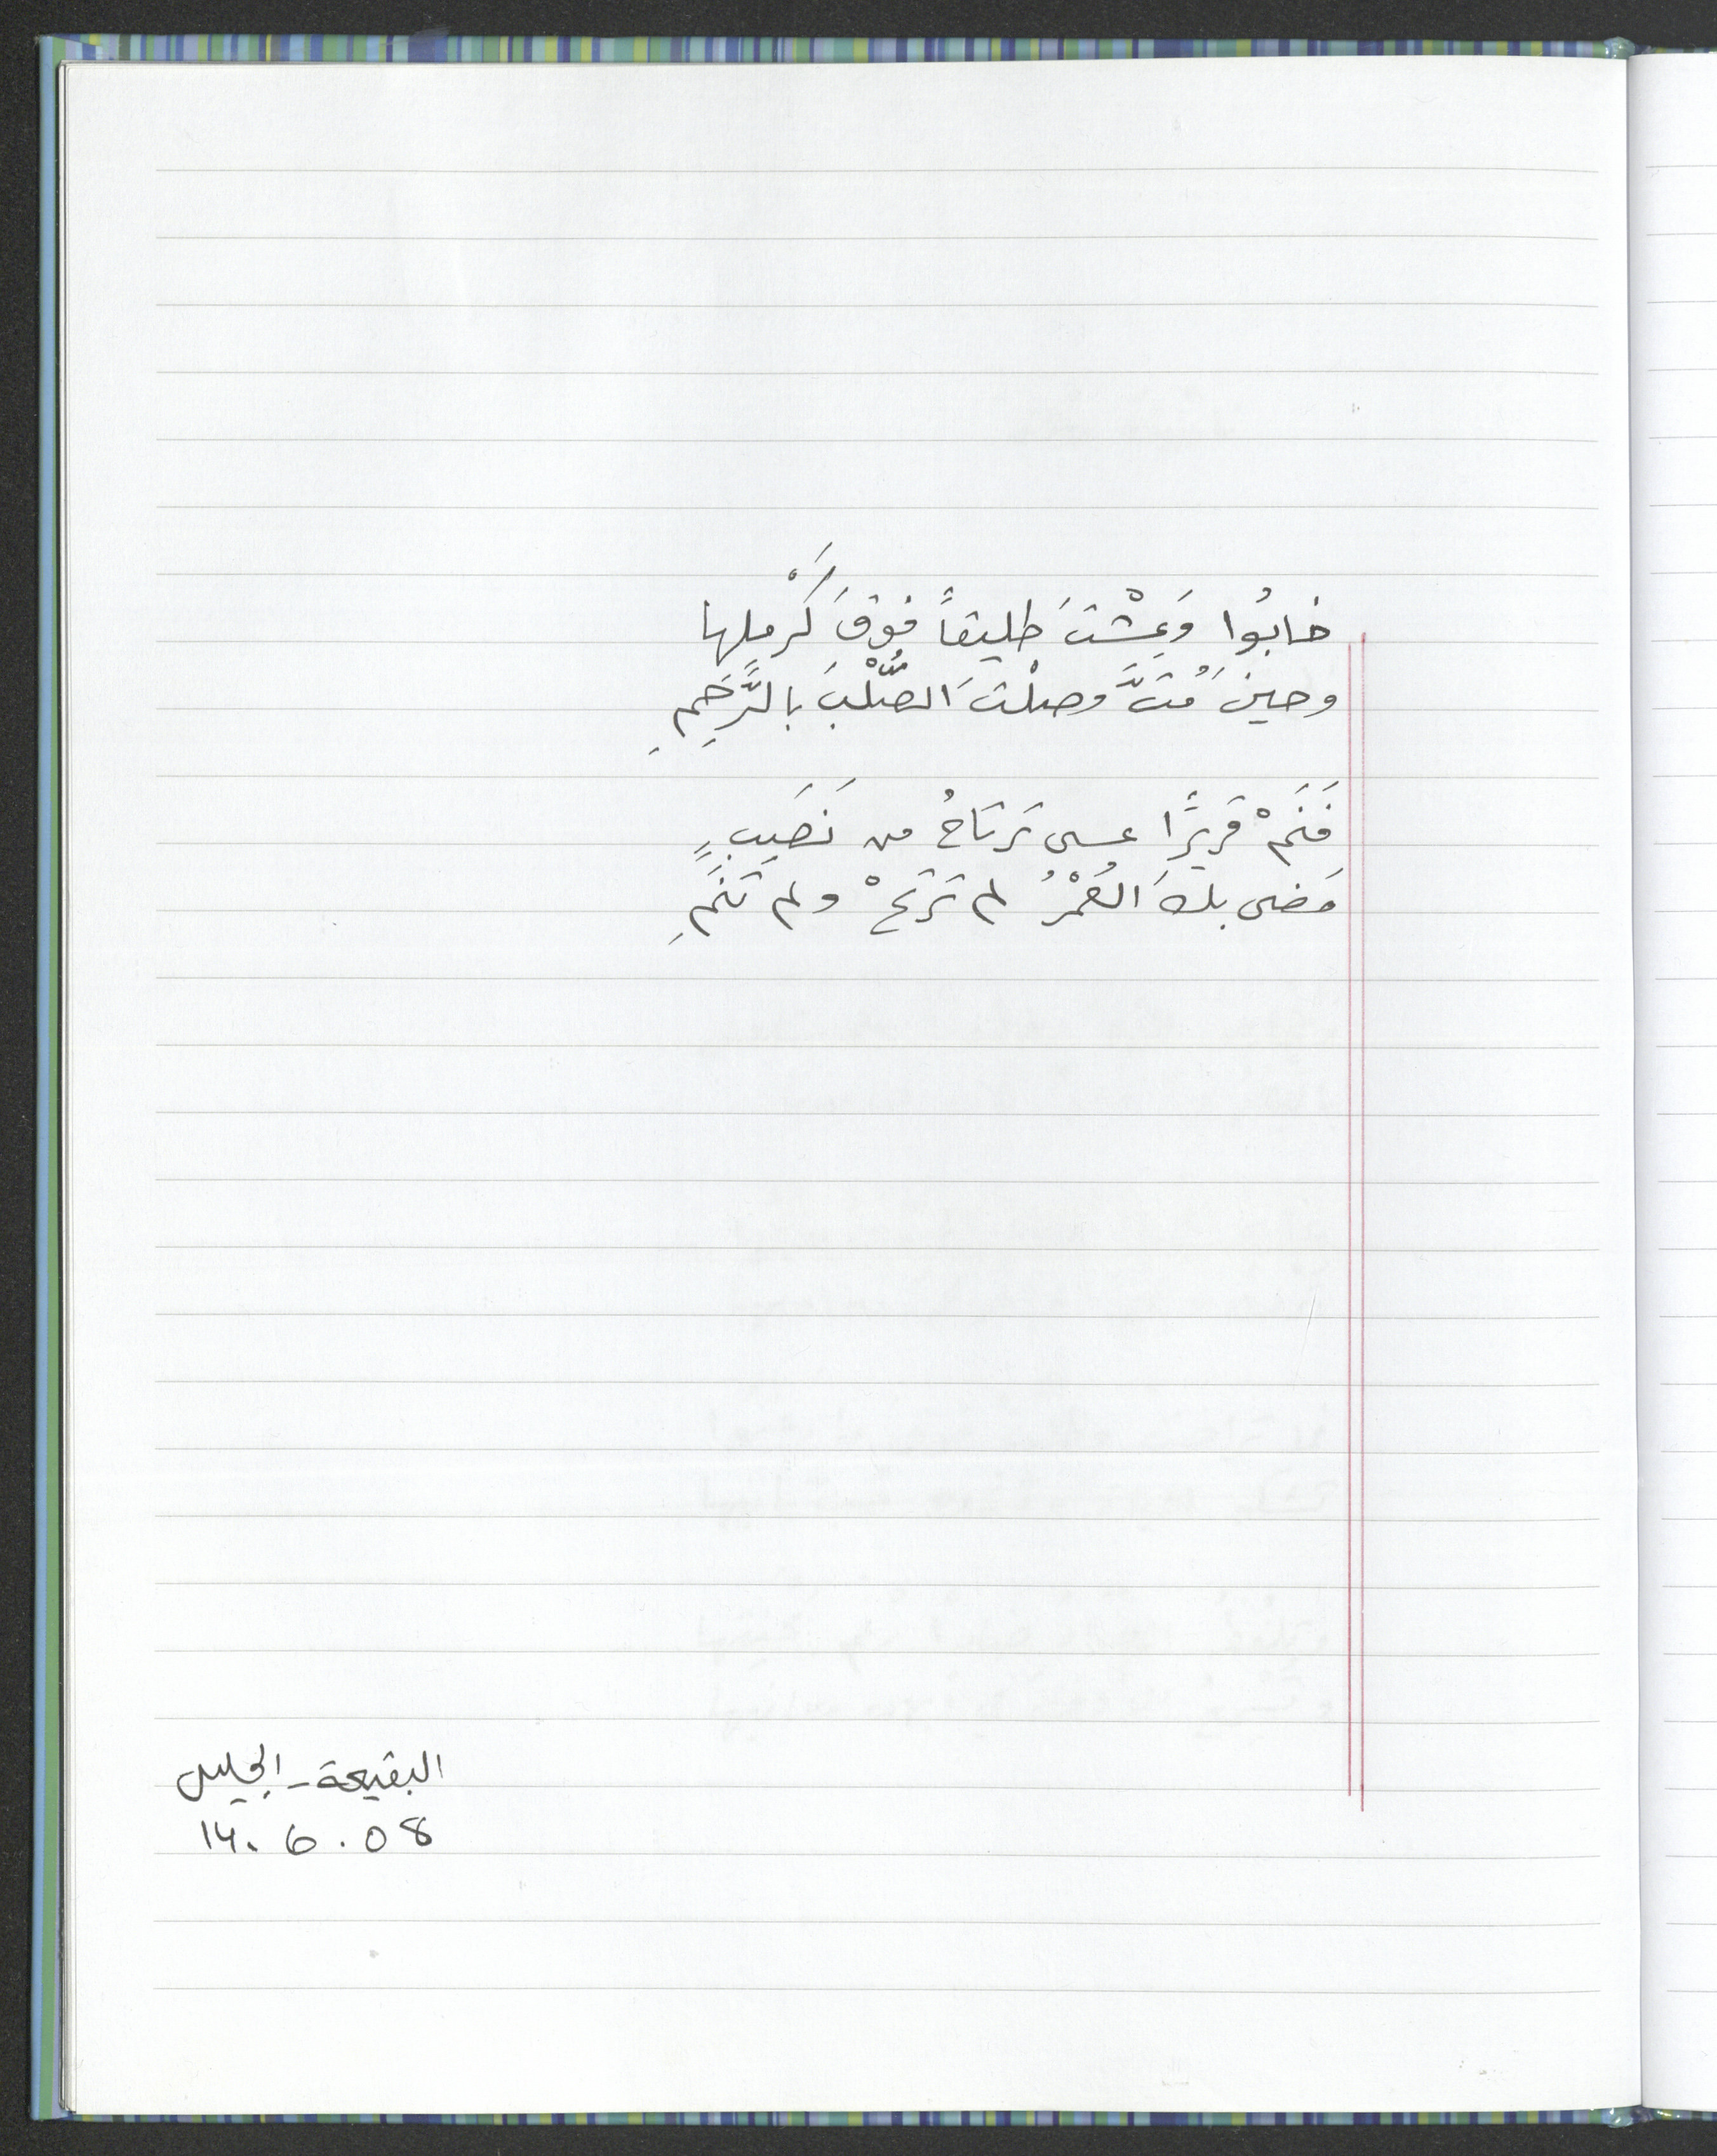 خابُوا وَعِشْتَ طليقاً فوقَ كَرْمِلها
وحينَ مُتَّ وصلْتَ الصُّلْبَ بالرَّحِمِ
فَنَمْ قَريرًا عسى تَرتَاحُ من نَصَبٍ
مَضى بكَ العُمْرُ لم تَرتَحْ ولم تَنَمِ
البقيعة - الجليل
14.6.08